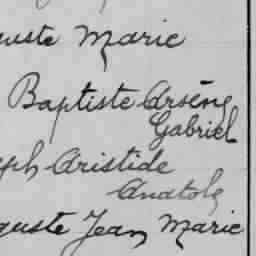 guste Marie
Baptiste Arsène
Gabriel
eph Aristide
Anatole
guste Jean Marie